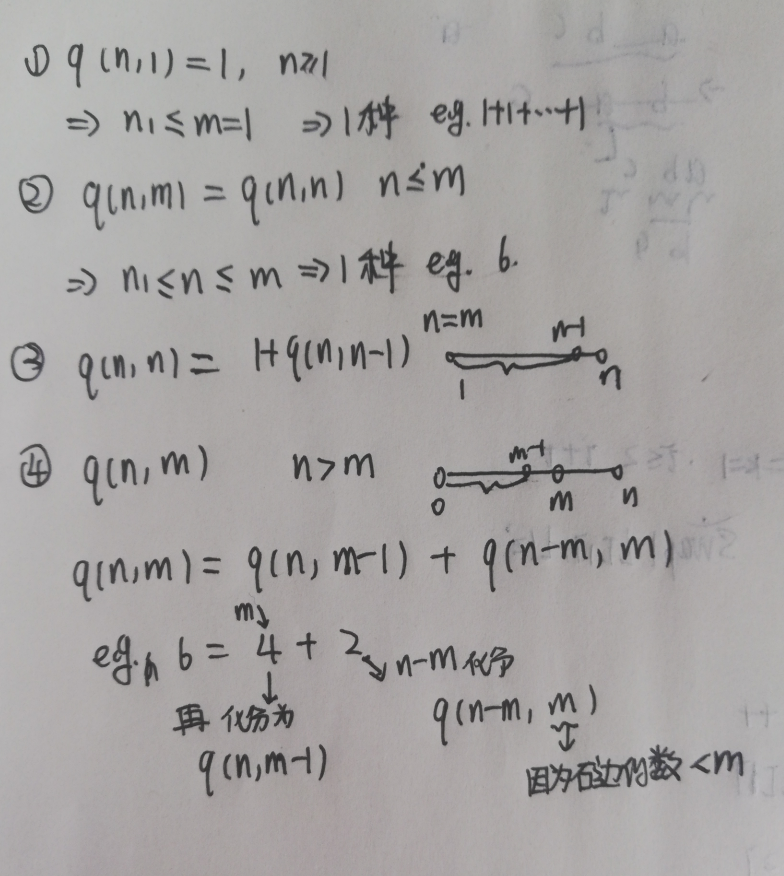 ① q(n,1)=1, n≥1
⇒ n₁≤m=1 ⇒1种 eg. 1+1+…+1
② q(n,m) = q(n,n) n≤m
⇒ n₁≤n≤m ⇒1种 eg. 6.
③ q(n,n)= 1+q(n,n-1) n=m 1 n-1 n
④ q(n,m) n>m 0 m-1 m n
q(n,m)= q(n,m-1) + q(n-m,m)
m↘
eg. n 6 = 4 + 2 ↘ n-m 化分
↓
再 化分为 q(n-m, m)
q(n,m-1) 因为右边的数<m